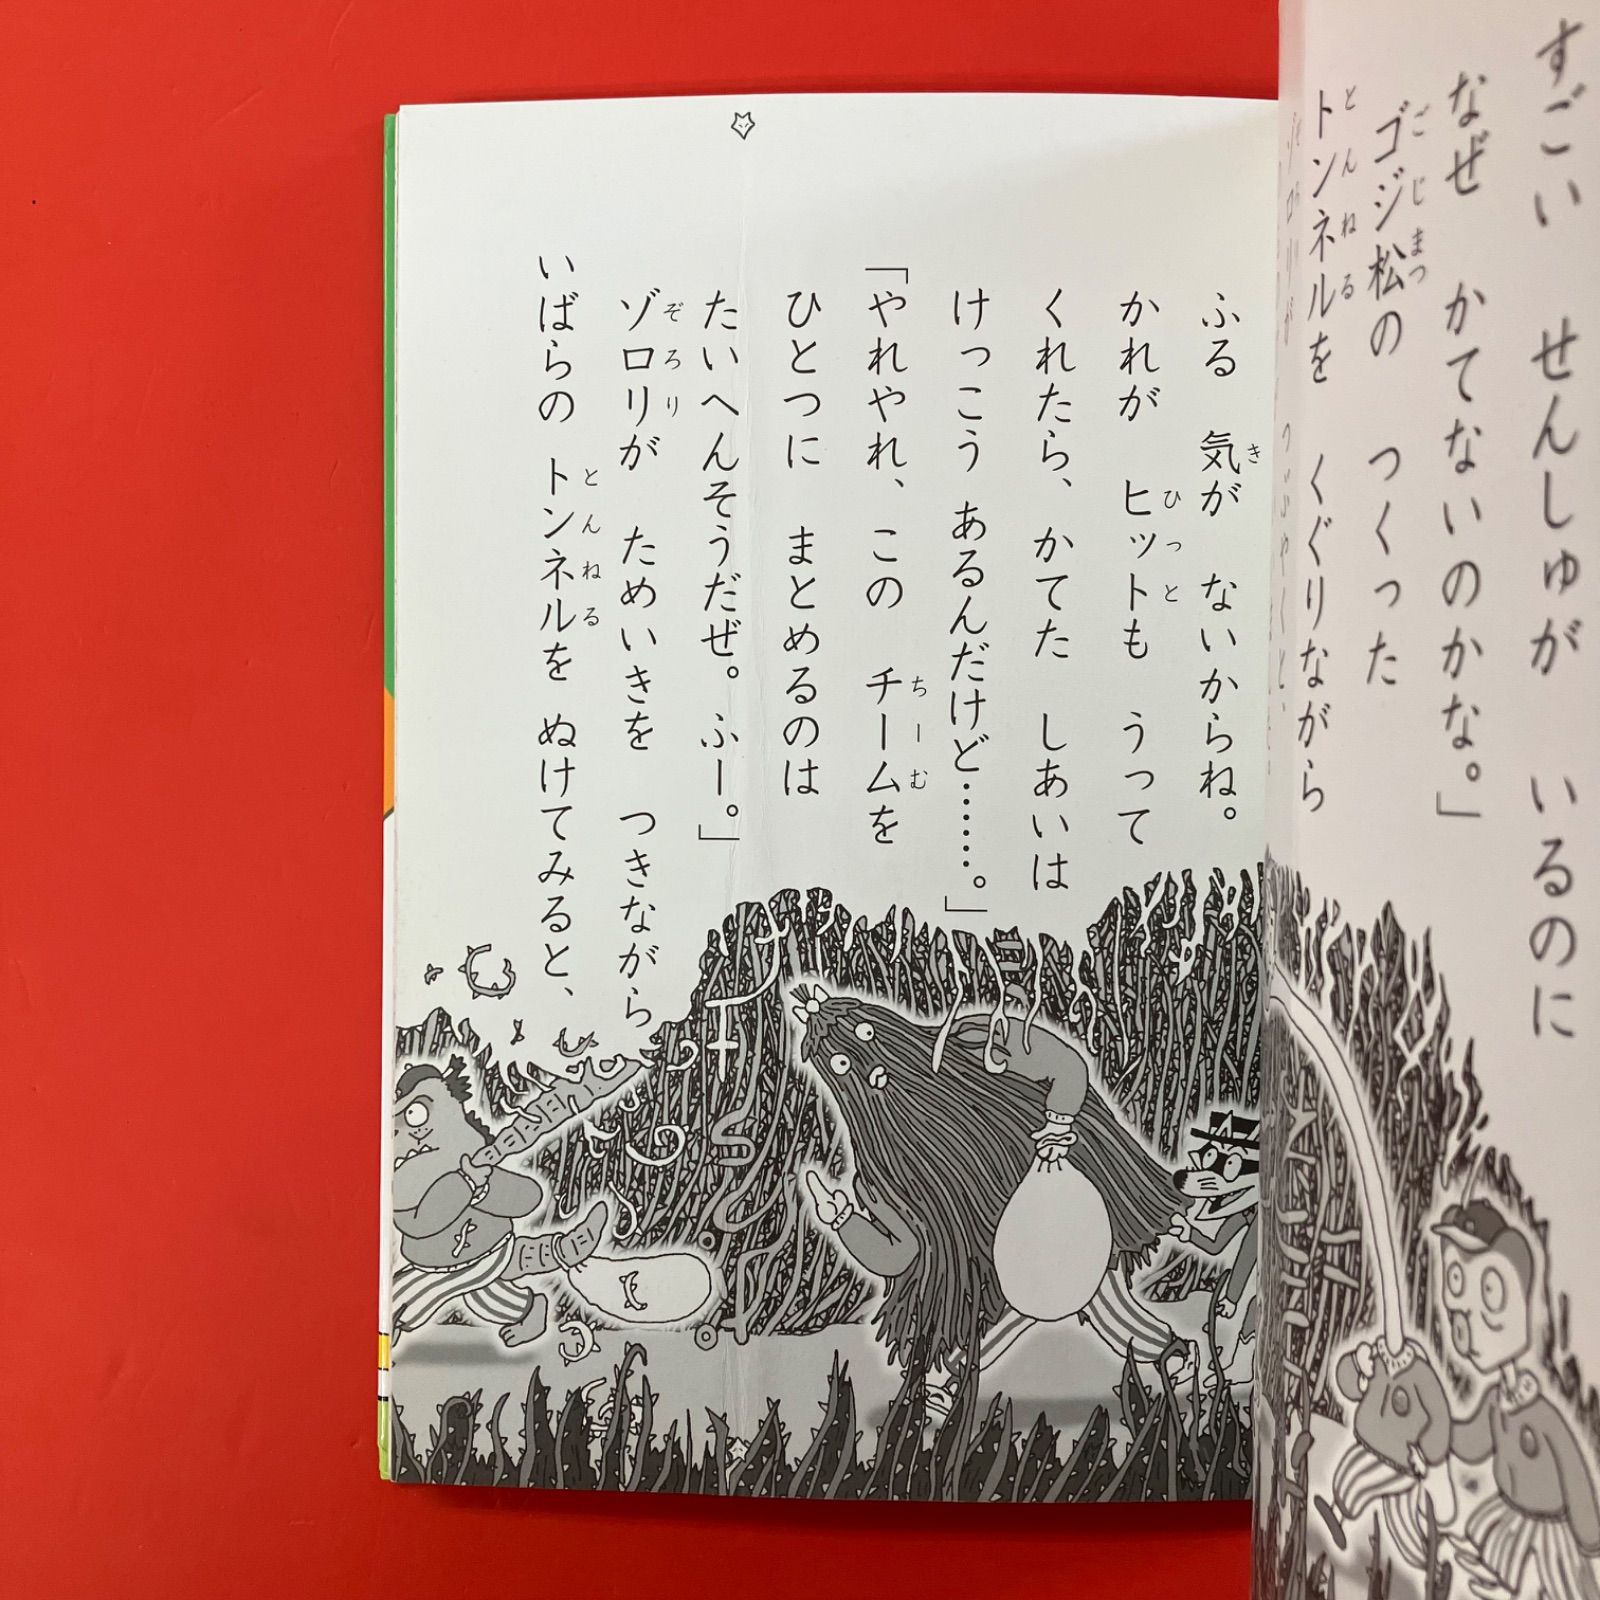 すごい せんしゅが いるのに
なぜ かてないのかな。」
ゴジ松の つくった
トンネルを くぐりながら
ふる 気が ないからね。
かれが ヒットも うって
くれたら、かてた しあいは
けっこう あるんだけど……。」
「やれやれ、この チームを
ひとつに まとめるのは
たいへんそうだぜ。ふー。」
ゾロリが ためいきを つきながら
いばらの トンネルを ぬけてみると、